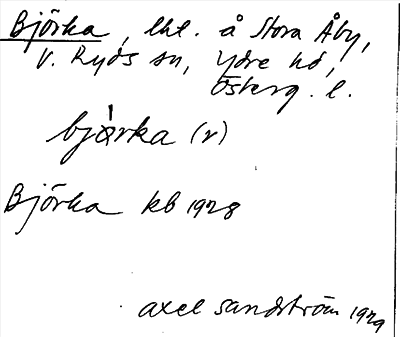 Björka, lht. å Stora Åby,
V. Ryds sn, Ydre hd,
Österg. l.
bjǿrka (r)
Björka kb 1928
Axel Sandström 1929